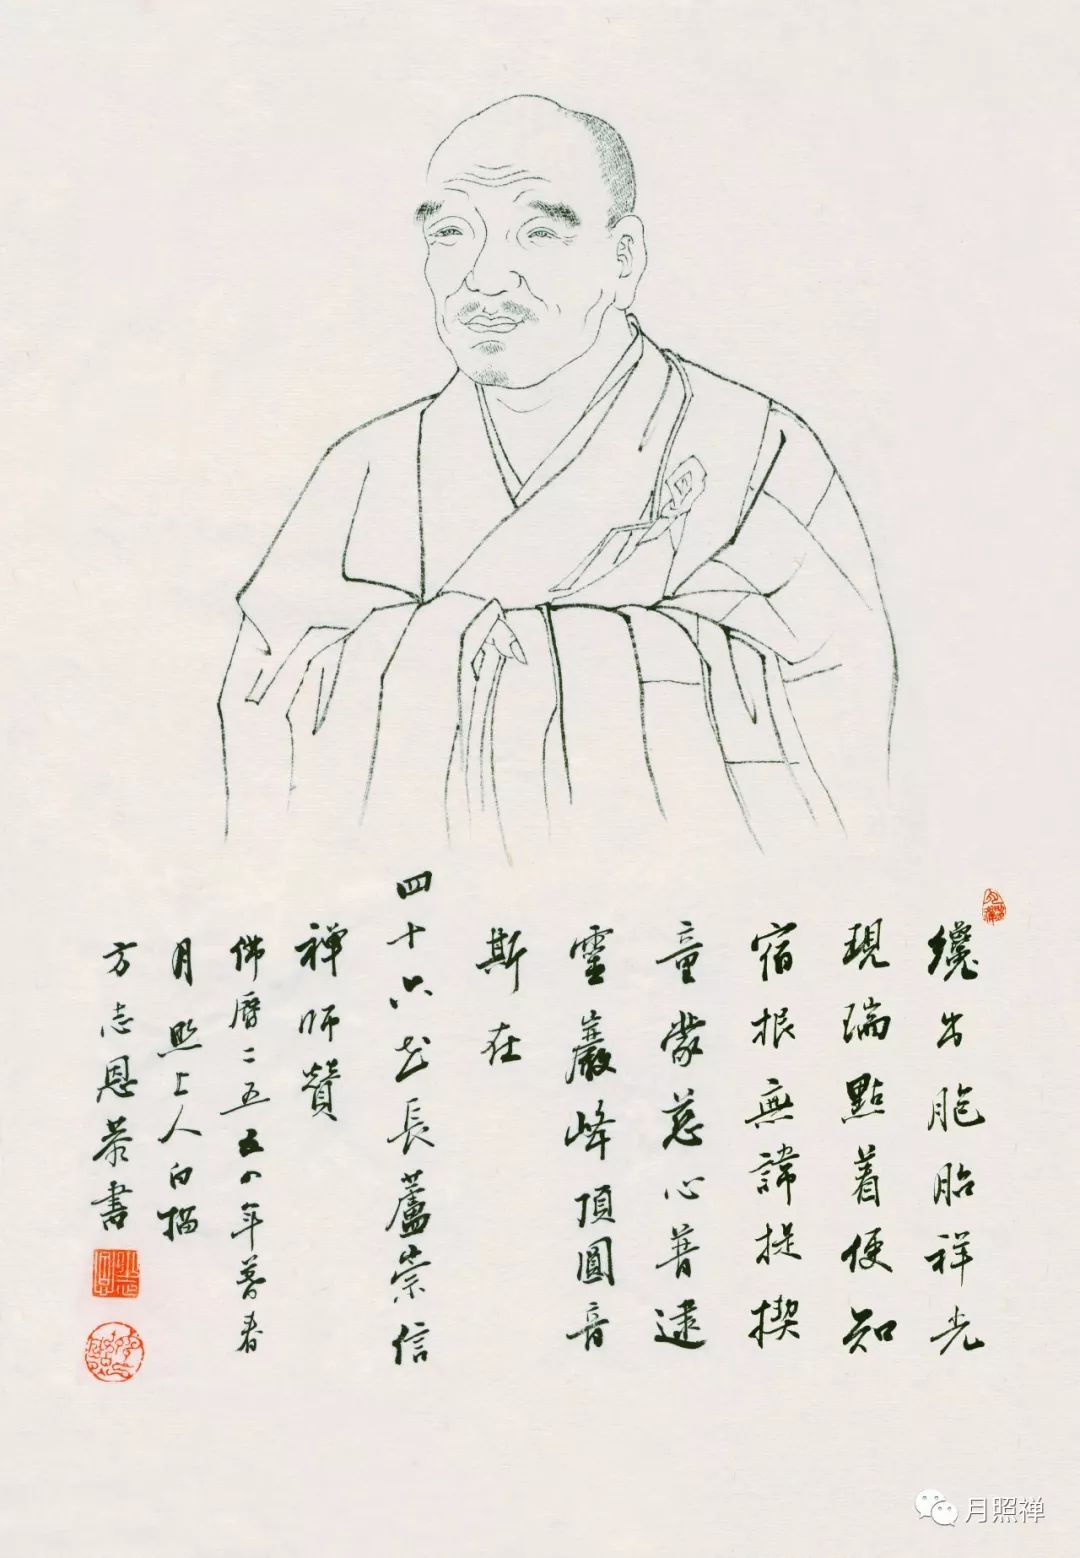 纔出胞胎祥光
現瑞點着便知
宿根無諱提撕
童蒙慈心普逮
靈巖峰頂圓音
斯在
四十六世長蘆崇信
禪師贊
佛曆二五五四年暮春
月照上人白描
方志恩恭書
月照禅